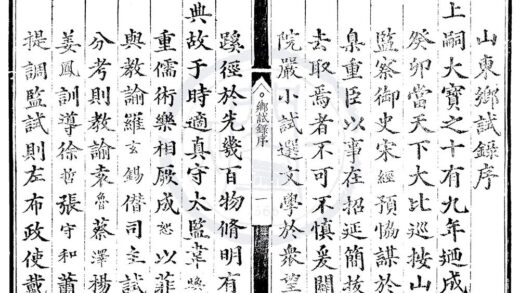 山東鄉試錄序
上嗣大寶之十有九年廼成
癸卯當天下大比巡按山
監察御史宋經預恊謀於
臬重臣以事在招延簡拔
去取焉者不可不慎爰關
院嚴小試選文學於衆望
鄉試錄序
一
蹊徑於先幾百物脩明有
典故于時適真守太監韋
重儒術樂相厥成恕以菲
與教諭羅玄錫偕司主試
分考則教諭袁魯蔡澤楊
姜鳳訓導徐哲張守和蕭
提調監試則左布政使戴